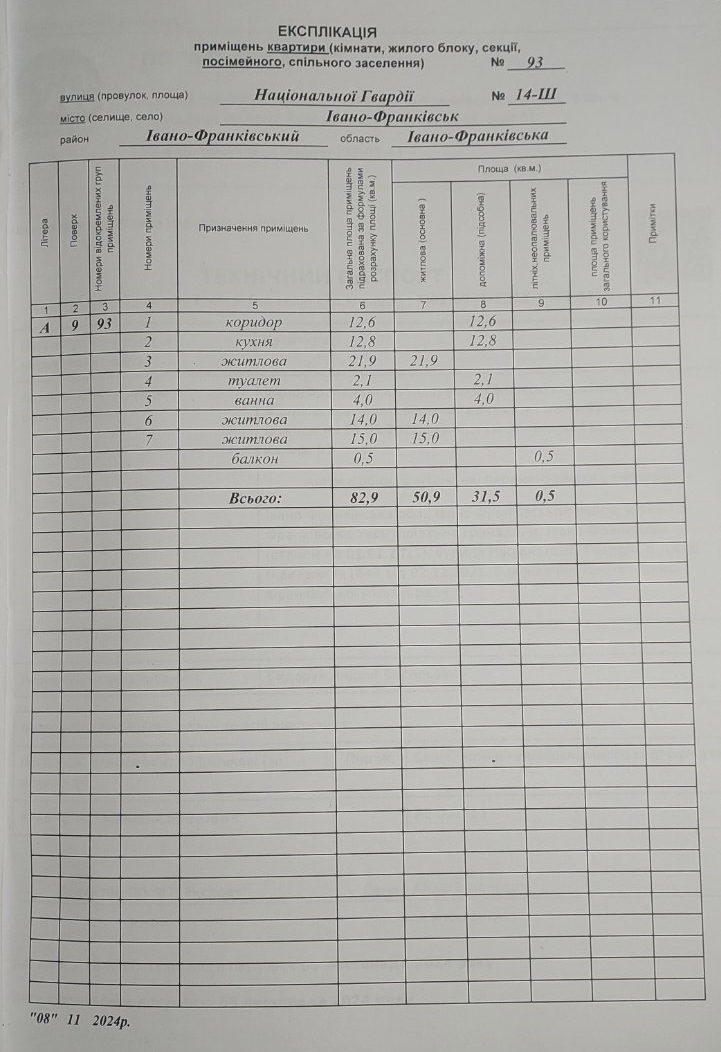 ЕКСПЛІКАЦІЯ
приміщень квартири (кімнати, жилого блоку, секції,
посімейного, спільного заселення) № 93
вулиця (провулок, площа) Національної Гвардії № 14-Ш
місто (селище, село) Івано-Франківськ
район Івано-Франківський область Івано-Франківська
Літера
Поверх
Номери відокремлених груп приміщень
Номери приміщень
Призначення приміщень
Загальна площа приміщень підрахована за формулами розрахунку площі (кв.м.)
Площа (кв.м.)
житлова (основна )
допоміжна (підсобна)
літніх,неопалювальних приміщень
площа приміщень загального користування
Примітки
1 2 3 4 5 6 7 8 9 10 11
А 9 93 1 коридор 12,6 12,6
2 кухня 12,8 12,8
3 житлова 21,9 21,9
4 туалет 2,1 2,1
5 ванна 4,0 4,0
6 житлова 14,0 14,0
7 житлова 15,0 15,0
балкон 0,5 0,5
Всього: 82,9 50,9 31,5 0,5
"08" 11 2024р.